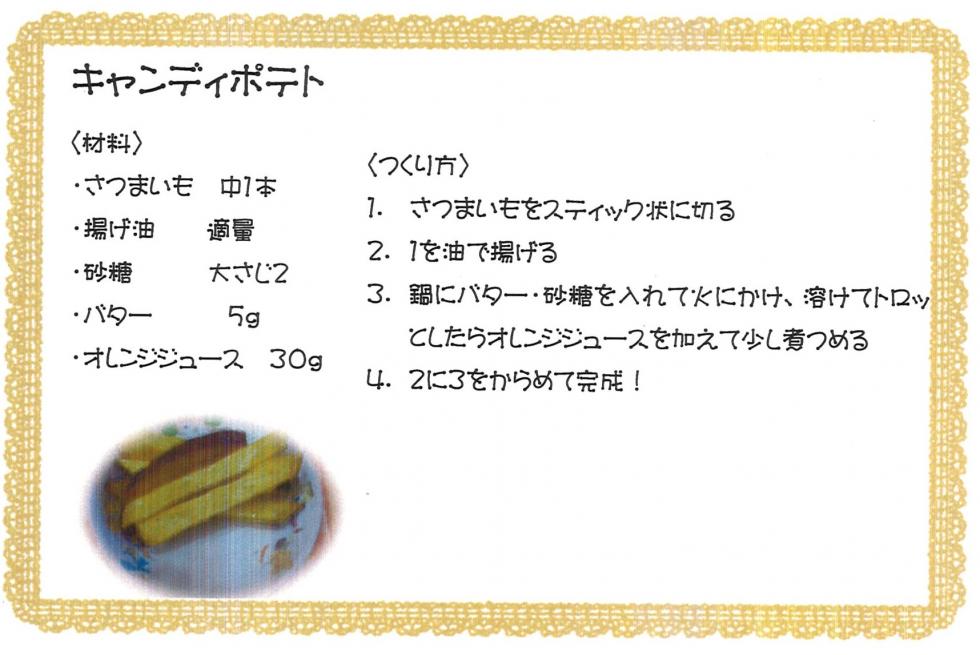 キャンディポテト
〈材料〉
・さつまいも　中1本
・揚げ油　適量
・砂糖　大さじ2
・バター　5g
・オレンジジュース　30g
〈つくり方〉
1.　さつまいもをスティック状に切る
2.　1を油で揚げる
3.　鍋にバター・砂糖を入れて火にかけ、溶けてトロッ
としたらオレンジジュースを加えて少し煮つめる
4.　2に3をからめて完成！